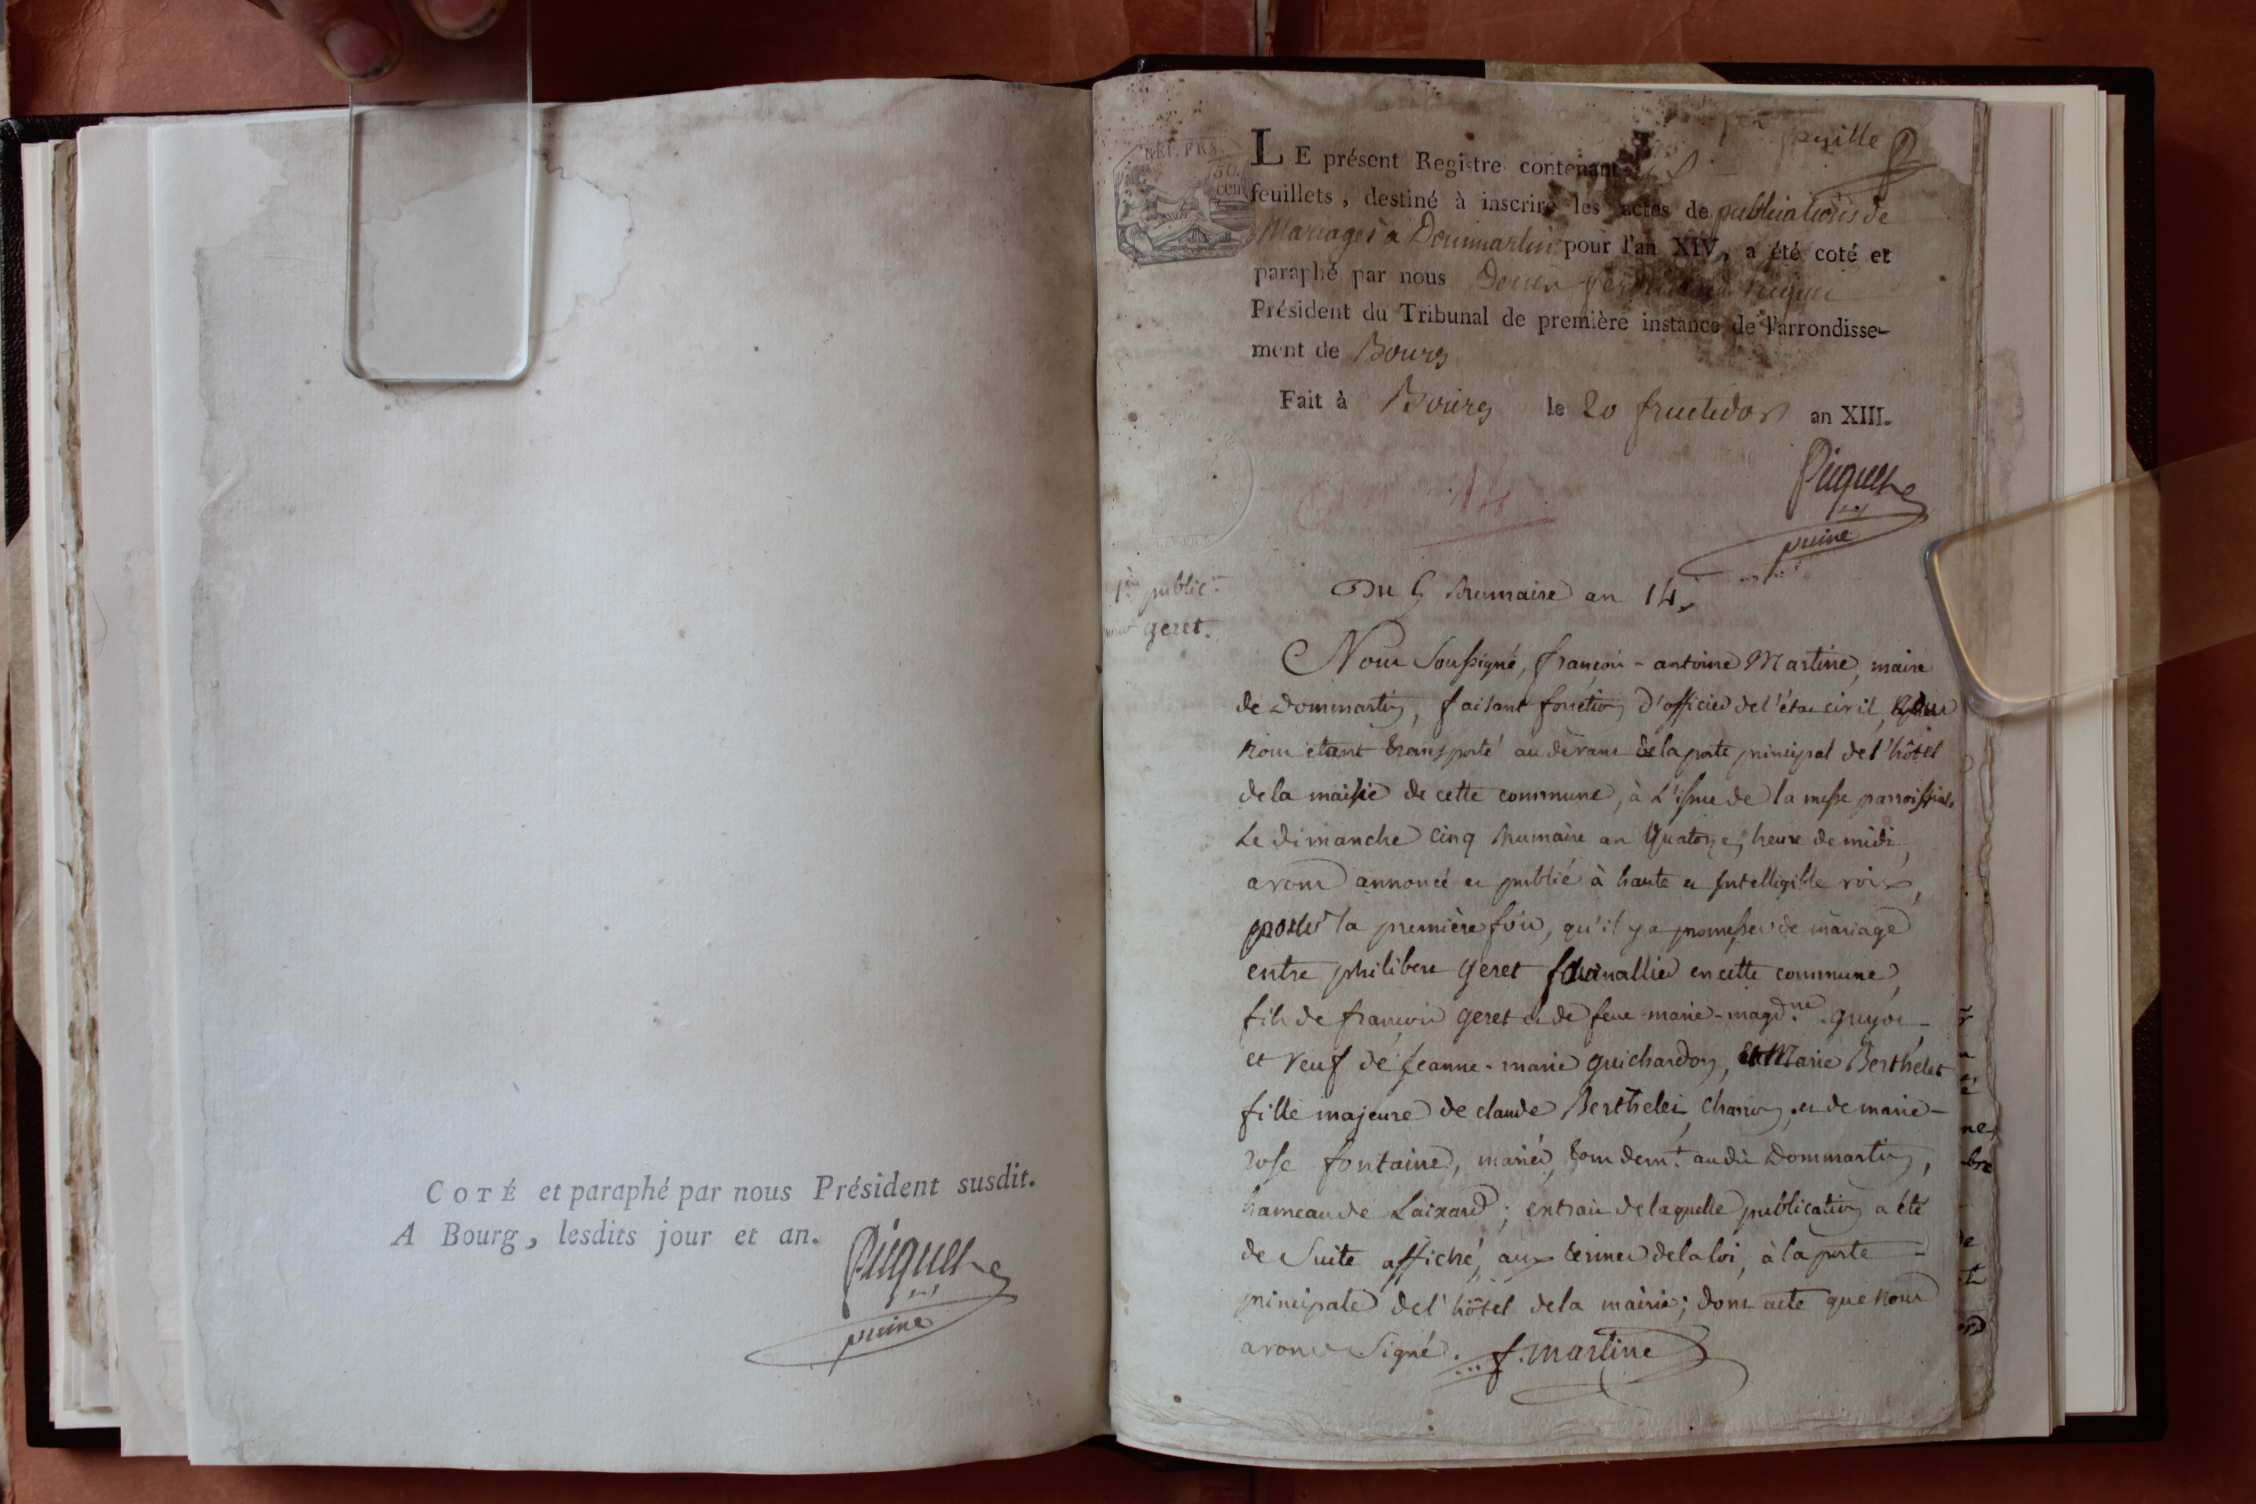 COTÉ et paraphé par nous Président susdit.
A Bourg, lesdits jour et an.
Picquet
puiné
feuille
RÉP. FRA.
50
cen
LE présent Registre contenant
feuillets, destiné à inscrire les actes de publications de
Mariages à Dommartin pour l'an XIV, a été coté et
paraphé par nous
Président du Tribunal de première instance de l'arrondisse-
ment de Bourg
Fait à Bourg le 20 fructidor an XIII.
Picquet
puiné
1ère public.on
geret.
Du 5 Brumaire an 14,
Nous Soussigné, françois-antoine Martine, maire
de Dommartin, faisant fonction d'officier de l'état civil,
nous étant transporté au devant de la porte principal de l'hôtel
de la mairie de cette commune, à l'issue de la messe parroissiale
Le dimanche cinq brumaire an Quatorze, heure de midi,
avons annoncé et publié à haute et Intelligible voix,
pour la première fois, qu'il y a promesses de mariage
entre philibert geret en cette commune,
fils de françois geret et de feue marie-magd.ne guyot
et veuf de jeanne-marie guichardon, et Marie Berthelet
fille majeure de claude Berthelet, charron, et de marie-
rose fontaine, mariés, tous dem.t audit Dommartin,
hameau de Laixard; extrait de laquelle publication a été
de Suite affiché, aux termes de la loi, à la porte
principale de l'hôtel de la mairie; dont acte que nous
avons Signé. f. martine